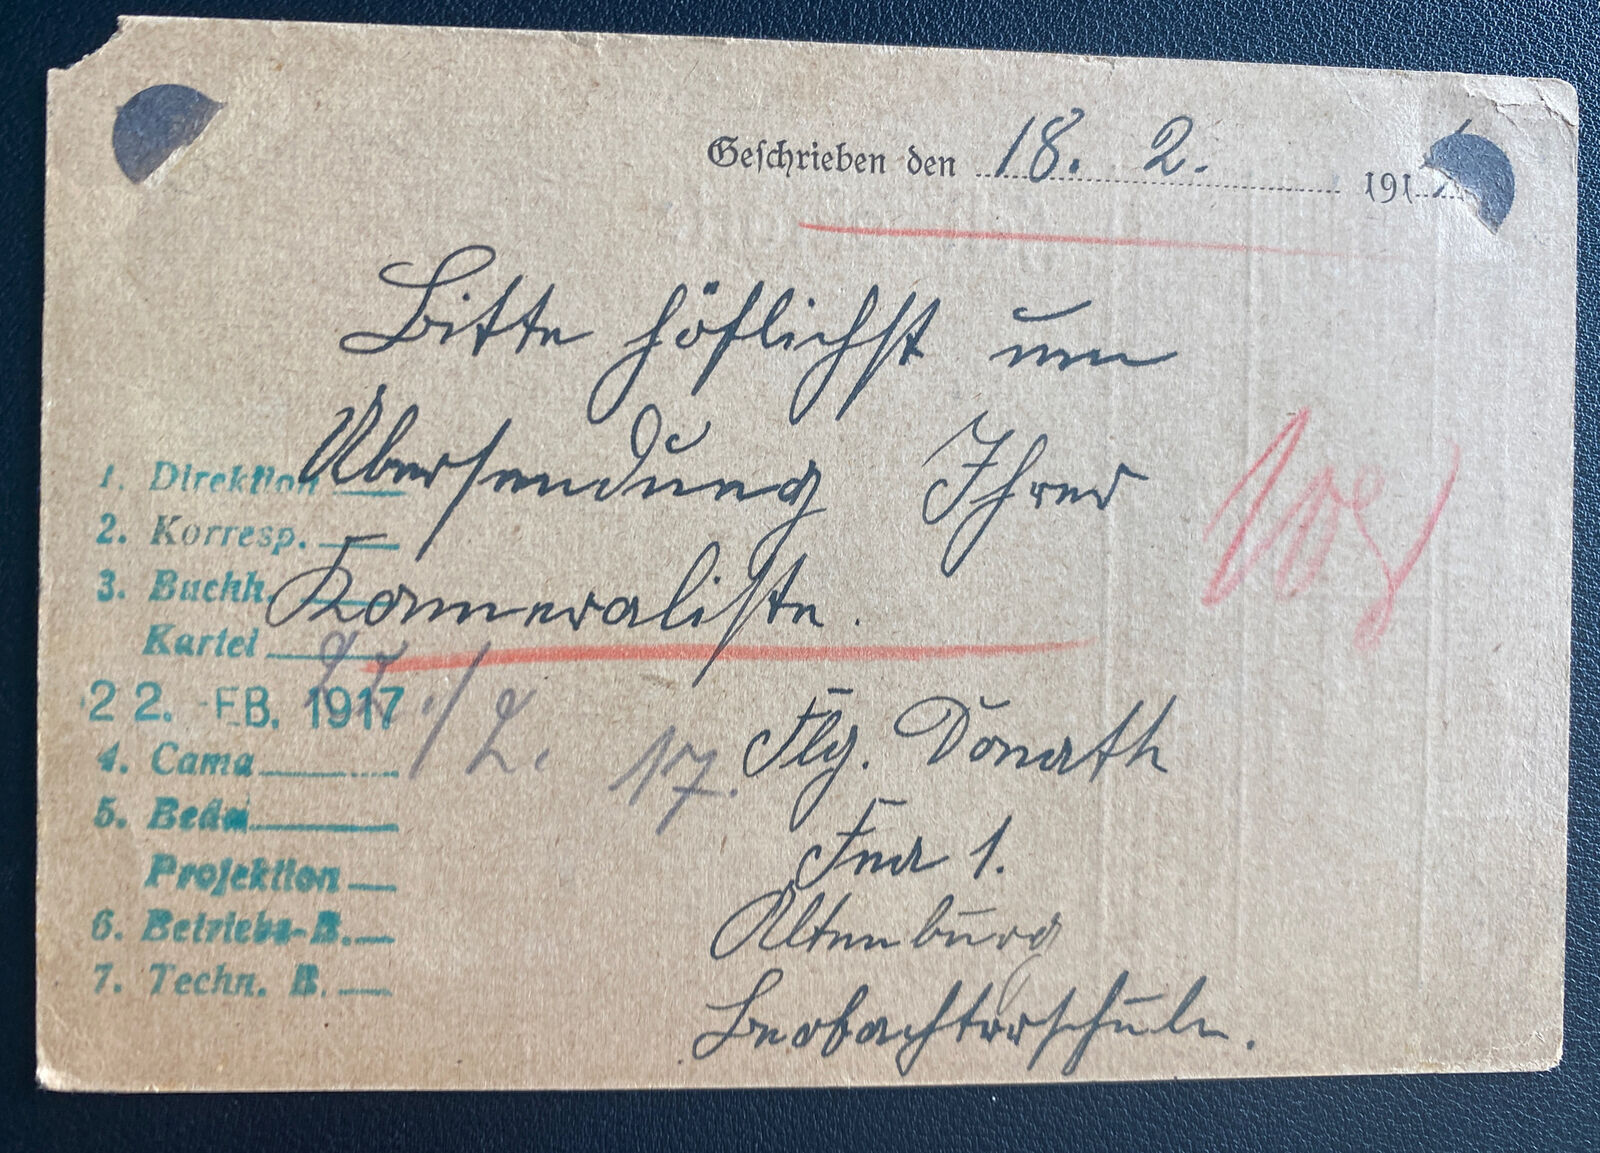 Geschrieben den 18. 2. 191
Bitte höflichst um
Übersendung Ihrer
Kameraliste.
1. Direktion
2. Korresp.
3. Buchh.
Kartei
22. FEB. 1917
4. Cama
5. Beda
Projektion
6. Betriebs-B.
7. Techn. B.
22./2. 17.
Flg. Donath
Fea 1.
Altenburg
Beobachterschule.